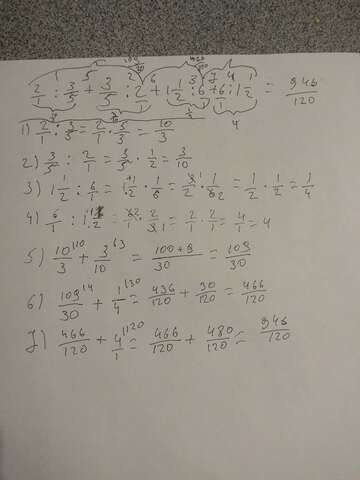 2/1 : 3/5 + 3/5 : 2/1 + 1 1/2 : 6/1 + 6/1 : 1 1/2 = 946/120
1) 2/1 : 3/5 = 2/1 · 5/3 = 10/3
2) 3/5 : 2/1 = 3/5 · 1/2 = 3/10
3) 1 1/2 : 6/1 = 1 1/2 · 1/6 = 3/2 · 1/6 = 1/2 · 1/2 = 1/4
4) 6/1 : 1 1/2 = 6/1 · 2/3 = 2/1 · 2/1 = 4/1 = 4
5) 10/3 + 3/10 = 100+9/30 = 109/30
6) 109/30 + 1/4 = 436/120 + 30/120 = 466/120
7) 466/120 + 4/1 = 466/120 + 480/120 = 946/120